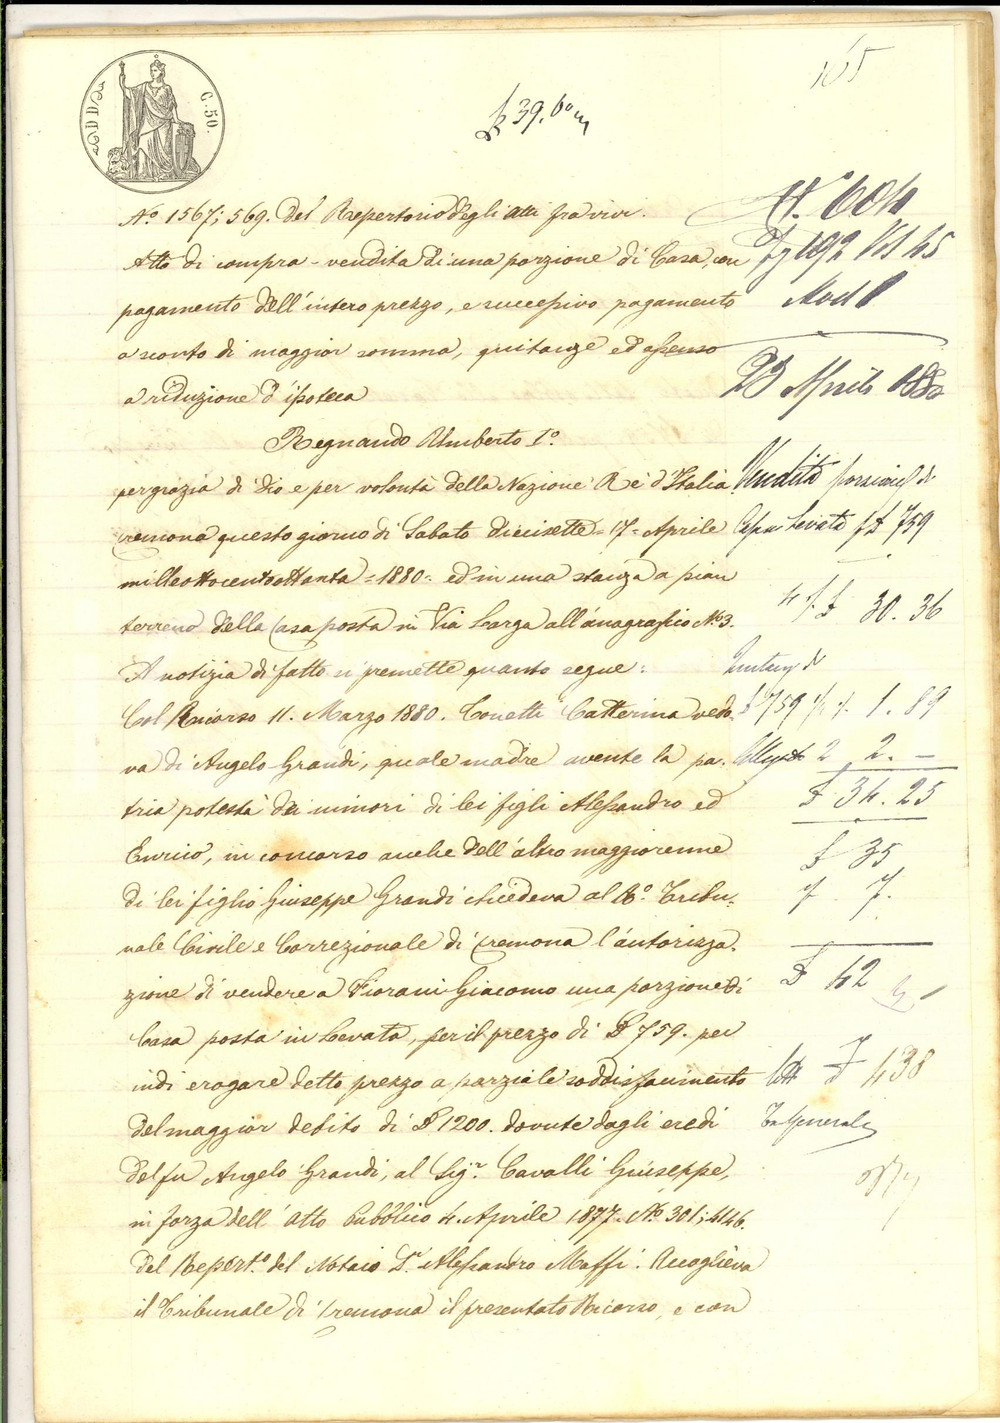 165
£ 39.60
C. 50.
N.° 1567; 569. del Repertorio degli atti fra vivi.
Atto di compra-vendita di una porzione di Casa, con
pagamento dell'intero prezzo, e successivo pagamento
a sconto di maggior somma, quitanze ed assenso
a riduzione d'ipoteca
Regnando Umberto I°.
per grazia di Dio e per volontà della Nazione Rè d'Italia
Cremona questo giorno di Sabato diecisette = 17 = Aprile
milleottocentoottanta = 1880 = ed in una stanza a pian
terreno della Casa posta in Via Larga all'anagrafico N.° 3.
A notizia di fatto si premette quanto segue:
Col Ricorso 11. Marzo 1880. Conetti Catterina vedo-
va di Angelo Grandi, quale madre avente la pa-
tria potestà dei minori di lei figli Alessandro ed
Enrico, in concorso anche dell'altro maggiorenne
di lei figlio Giuseppe Grandi chiedeva al R.° Tribu-
nale Civile e Correzionale di Cremona l'autorizza-
zione di vendere a Fiorani Giacomo una porzione di
Casa posta in Levata, per il prezzo di £ 759. per
indi erogare detto prezzo a parziale soddisfacimento
del maggior debito di £ 1200. dovute dagli eredi
del fu Angelo Grandi, al Sig.r Cavalli Giuseppe,
in forza dell'Atto Pubblico 4. Aprile 1877. N.° 301; 4146.
del Repert.° del Notaio D.r Alessandro Maffi. Accoglieva
il Tribunale di Cremona il presentato Ricorso, e con
N. 604
Fg 192 Vol 45
Mod 1
23 Aprile 1880
Vendita porzione di
Casa Levata £ 759
4 % £ 30. 36
Quitanza di
£ 759 1. 89
2 2. —
£ 34. 25
£ 35
7.
£ 42
£ 438